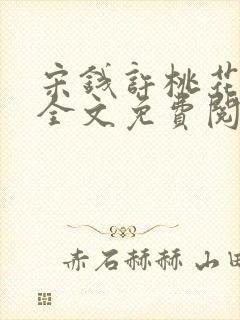 宋钱許桃花
全文免費閱
赤石赫赫 山田